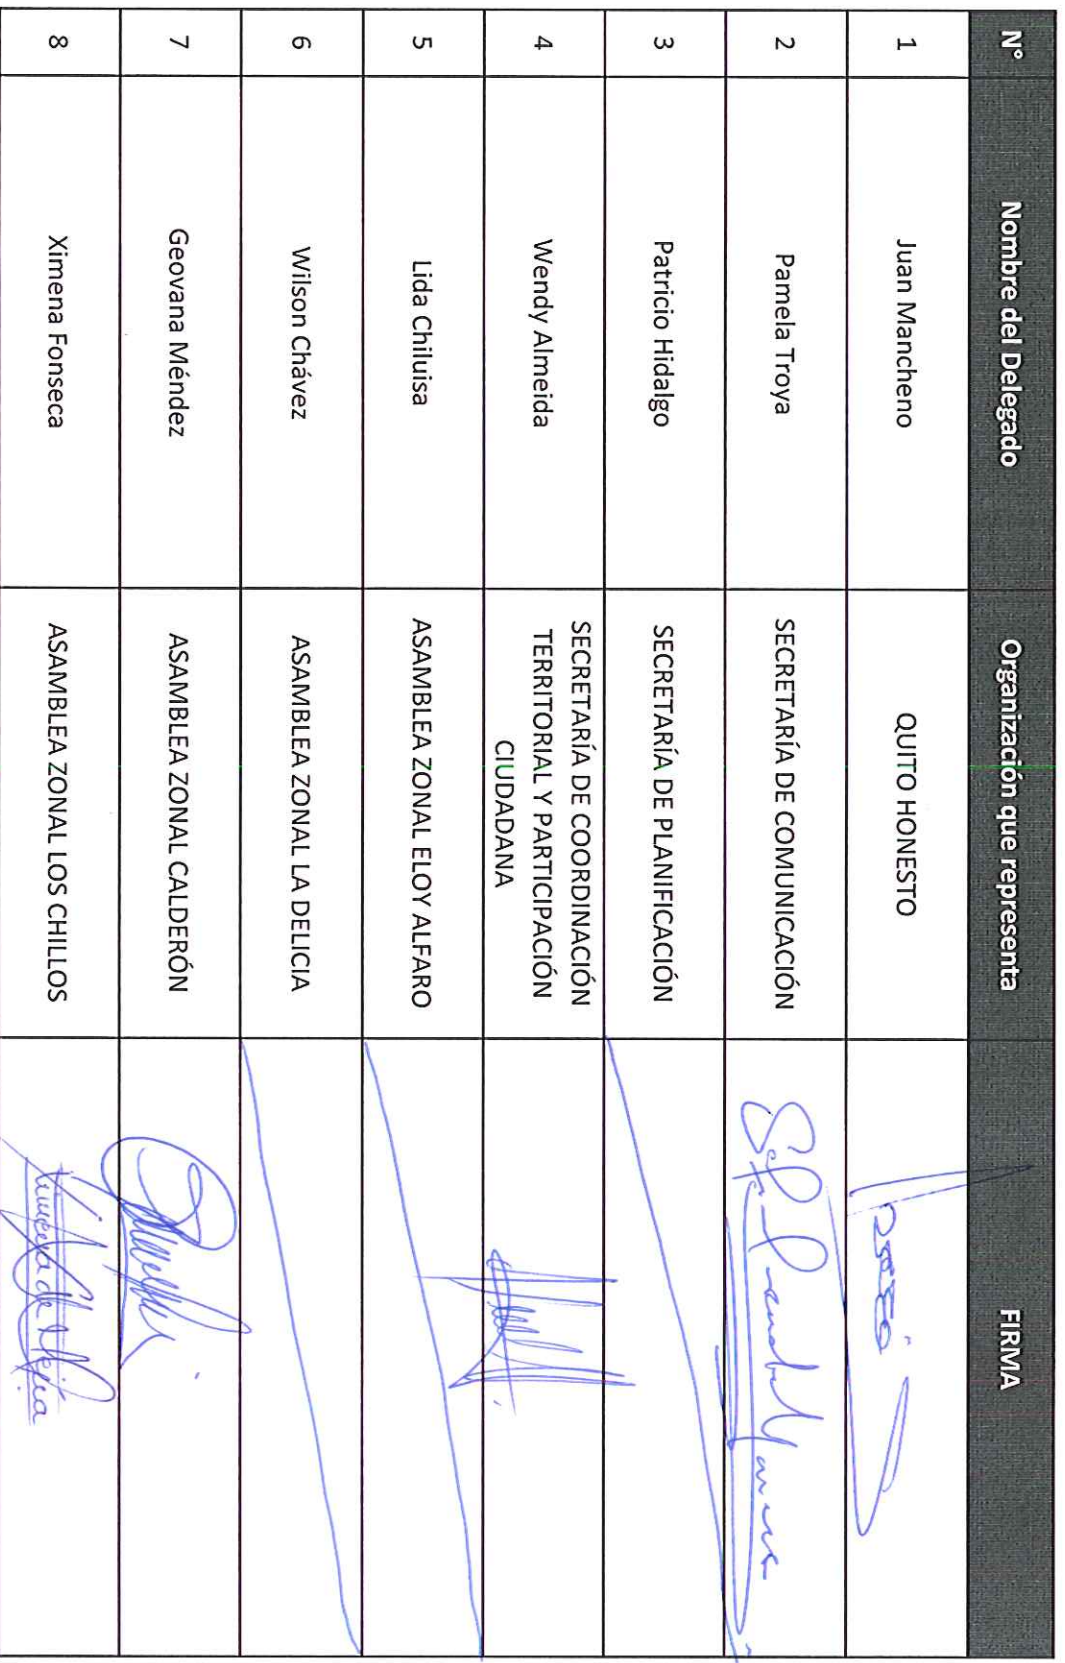 N° Nombre del Delegado Organización que representa FIRMA
1 Juan Mancheno QUITO HONESTO
2 Pamela Troya SECRETARÍA DE COMUNICACIÓN
3 Patricio Hidalgo SECRETARÍA DE PLANIFICACIÓN
4 Wendy Almeida SECRETARÍA DE COORDINACIÓN
TERRITORIAL Y PARTICIPACIÓN
CIUDADANA
5 Lida Chiluisa ASAMBLEA ZONAL ELOY ALFARO
6 Wilson Chávez ASAMBLEA ZONAL LA DELICIA
7 Geovana Méndez ASAMBLEA ZONAL CALDERÓN
8 Ximena Fonseca ASAMBLEA ZONAL LOS CHILLOS